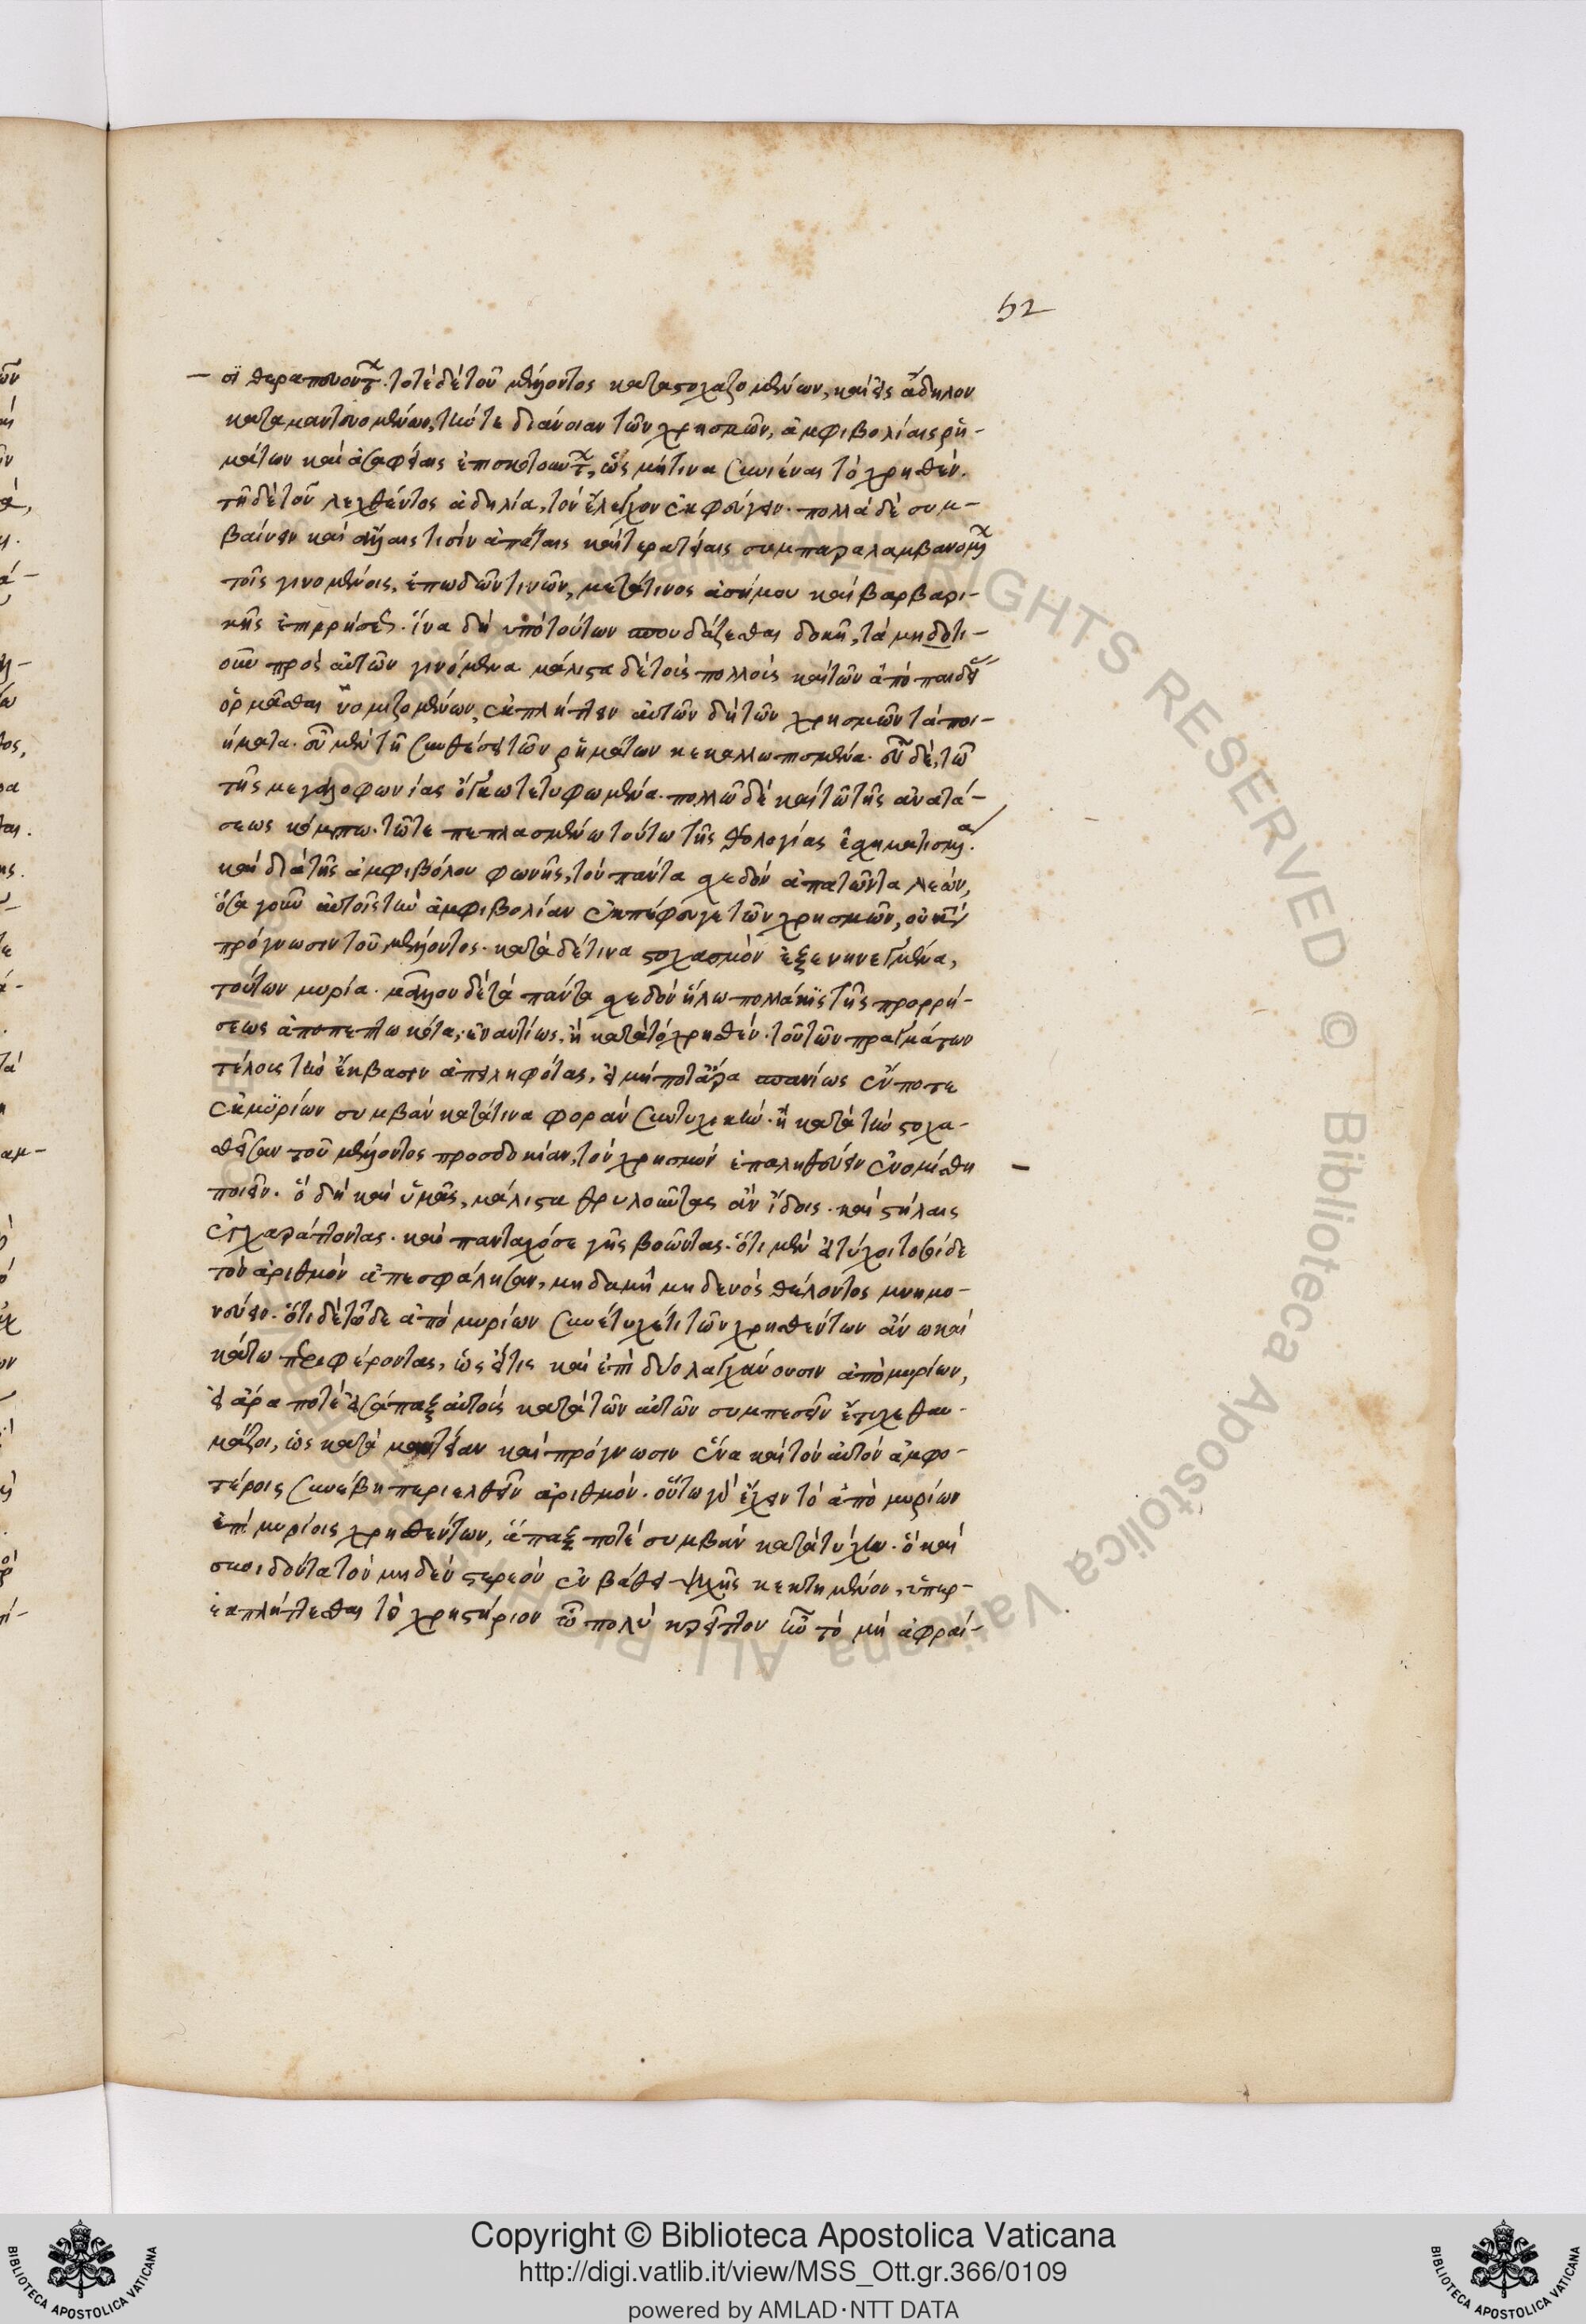 52
οἱ θεραπεύοντες. τοτὲ δὲ τοῦ μέλλοντος καταστοχαζομένων, καὶ εἰς ἄδηλον
καταμαντευομένων, τήν τε διάνοιαν τῶν χρησμῶν, ἀμφιβολίαις ῥη-
μάτων καὶ ἀσαφείαις ἐπισκοτούντων, ὡς μή τινα συνιέναι τὸ χρησθέν.
τῇ δὲ τοῦ λεχθέντος ἀδηλία, τὸν ἔλεγχον ἐκφεύγειν. πολλὰ δὲ συμ-
βαίνειν καὶ ἄλλαις τισὶν ἀπάταις καὶ τερατείαις συμπαραλαμβανομένων
τοῖς γινομένοις, ἐπωδῶν τινῶν, μετά τινος ἀσήμου καὶ βαρβαρι-
κῆς ἐπιρρήσεως. ἵνα δὴ ὑπὸ τούτων σπουδάζεσθαι δοκῇ, τὰ μηδοτι-
οῦν πρὸς αὐτῶν γινόμενα μάλιστα δὲ τοὺς πολλοὺς καὶ τῶν ἀπὸ παιδείας
ὁρμᾶσθαι νομιζομένων, ἐκπλήττειν αὐτῶν δὴ τῶν χρησμῶν τὰ ποι-
ήματα. εὖ μὲν τῇ συνθέσει τῶν ῥημάτων κεκαλλωπισμένα. εὖ δὲ, τῷ
τῆς μεγαλοφωνίας ὄγκω τετυφωμένα. πολλῷ δὲ καὶ τῷ τῆς ἀνατά-
σεως κόμπω. τῷ τε πεπλασμένω τούτω τῆς θεολογίας ἐσχηματισμένα.
καὶ διὰ τῆς ἀμφιβόλου φωνῆς, τὸν πάντα σχεδὸν ἀπατῶντα λεών,
ὅσα γοῦν αὐτοῖς τὴν ἀμφιβολίαν ἐκπέφευγε τῶν χρησμῶν, οὐ κατὰ
πρόγνωσιν τοῦ μέλλοντος. κατὰ δέ τινα στοχασμὸν ἐξενηνεγμένα,
τούτων μυρία. μᾶλλον δὲ τὰ πάντα σχεδὸν ἥλω πολλάκις τῆς προρρή-
σεως ἀποπεπτωκότα, ἐναντίως, ἢ κατὰ τὸ χρησθέν. τοῦ τῶν πραγμάτων
τέλους τὴν ἔκβασιν ἀπειληφότας, εἰ μήποτ' ἄρα σπανίως ἕν ποτε
ἐκ μυρίων συμβὰν κατά τινα φορὰν συντυχικήν. ἢ κατὰ τὴν στοχα-
σθεῖσαν τοῦ μέλλοντος προσδοκίαν, τὸν χρησμὸν ἐπαληθεύειν ἐνομίσθη
ποιεῖν. ὃ δὴ καὶ ὑμᾶς, μάλιστα θρυλοῦντας ἂν ἴδοις. καὶ στήλαις
ἐγχαράττοντας. καὶ πανταχόσε γῆς βοῶντας. ὅτι μὲν εἰ τύχοι τοσοίδε
τὸν ἀριθμὸν ἀπεσφάλησαν, μηδαμῆ μηδενὸς θέλοντος μνημο-
νεύειν. ὅτι δὲ τῷδε ἀπὸ μυρίων συνέτυχέ τι τῶν χρησθέντων ἄνω καὶ
κάτω περιφέροντας, ὡς εἴ τις καὶ ἐπὶ δύο λαγχάνουσιν ἀπὸ μυρίων,
εἰ ἄρα ποτὲ εἰσάπαξ αὐτοὺς κατὰ τῶν αὐτῶν συμπεσεῖν ἔτυχε θαυ-
μάζοι, ὡς κατὰ μαντείαν καὶ πρόγνωσιν ἕνα καὶ τὸν αὐτὸν ἀμφο-
τέροις συνέβη περιελθεῖν ἀριθμόν. οὕτω γὰρ ἔχειν τὸ ἀπὸ μυρίων
ἐπὶ μυρίοις χρησθέντων, ἅπαξ ποτὲ συμβὰν κατὰ τύχην. ὃ καὶ
σκοιδόντα τὸν μηδὲν στερεὸν ἐν βάθει ψυχῆς κεκτημένον, ὑπερ-
εκπλήττεσθαι τὸ χρηστήριον ᾧ πολὺ κρεῖττον ἦν τὸ μὴ ἀφραί-
Copyright © Biblioteca Apostolica Vaticana
http://digi.vatlib.it/view/MSS_Ott.gr.366/0109
powered by AMLAD·NTT DATA